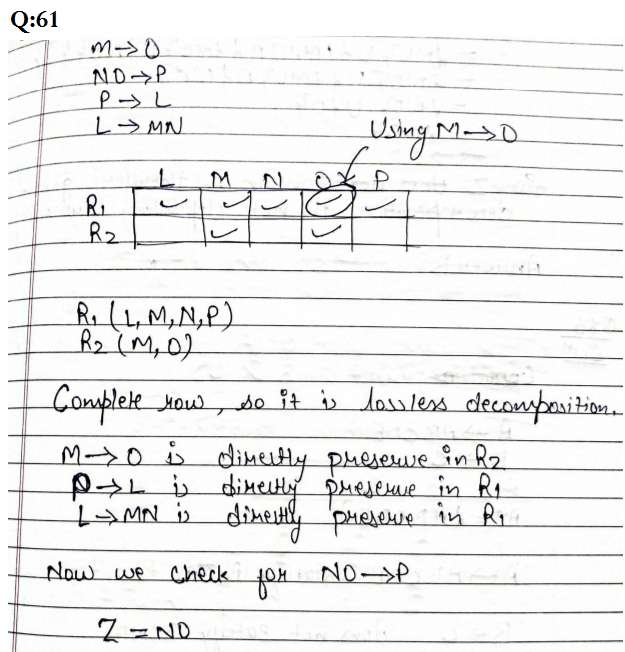 Q:61
M→O
NO→P
P→L
L→MN
Using M→O
L M N O P
R1 ✓ ✓ ✓ ✓ ✓
R2 ✓ ✓
R1 (L,M,N,P)
R2 (M,O)
Complete row, so it is lossless decomposition.
M→O is directly preserve in R2
P→L is directly preserve in R1
L→MN is directly preserve in R1
Now we check for NO→P
Z = NO